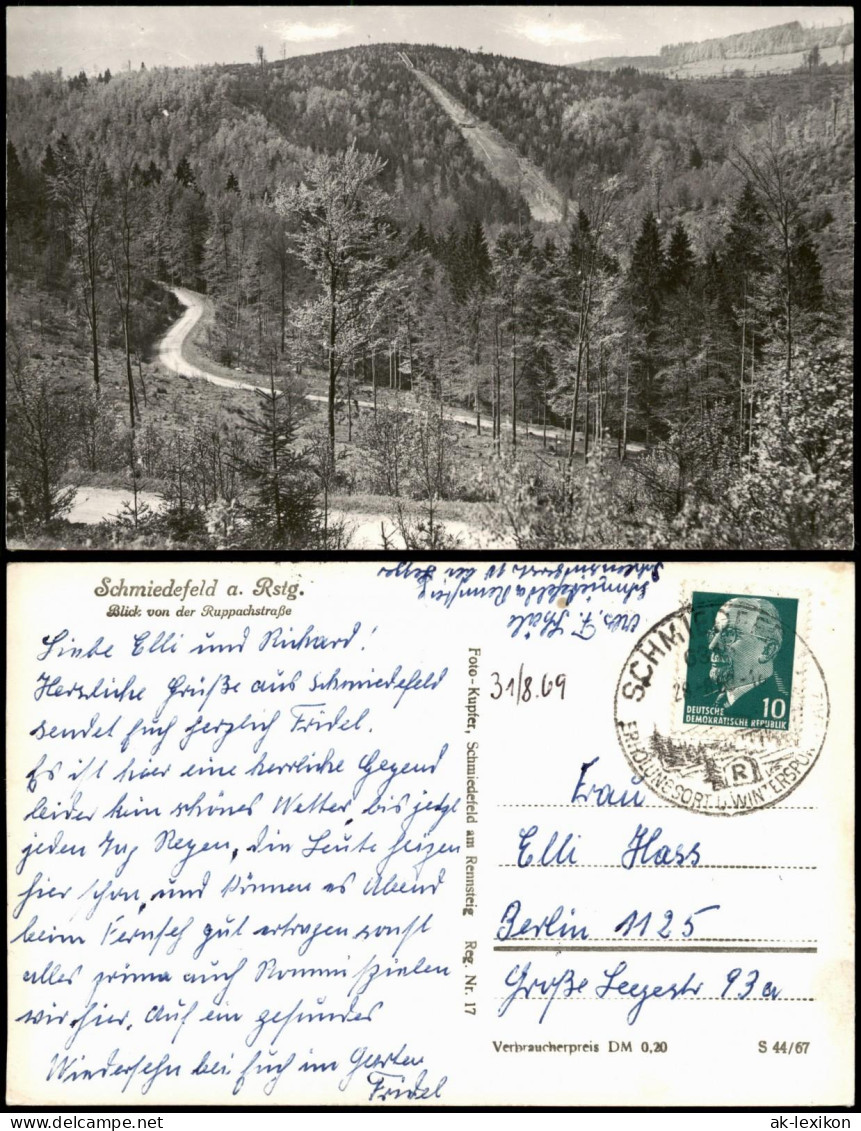 Schmiedefeld a. Rstg.
Blick von der Ruppachstraße
Liebe Elli und Richard!
Herzliche Grüße aus Schmiedefeld
sendet Euch herzlich Fridel.
Es ist hier eine herrliche Gegend
leider kein schönes Wetter, bis jetzt
jeden Tag Regen, die Leute heizen
hier schon, und können es Abend
beim Fernseh gut ertragen sonst
alles prima auch Rommi spielen
wir hier. Auf ein gesundes
Wiedersehn bei Euch im Garten
Fridel
Foto-Kupfer, Schmiedefeld am Rennsteig Reg. Nr. 17
Schmiedefeld a Rennsteig
31/8.69
SCHMIE
ERHOLUNGSORT U. WINTERSPOR
R
DEUTSCHE
DEMOKRATISCHE REPUBLIK
10
Frau
Elli Hass
Berlin 1125
Große Leegestr 93a
Verbraucherpreis DM 0,20
S 44/67
ak-lexikon.com